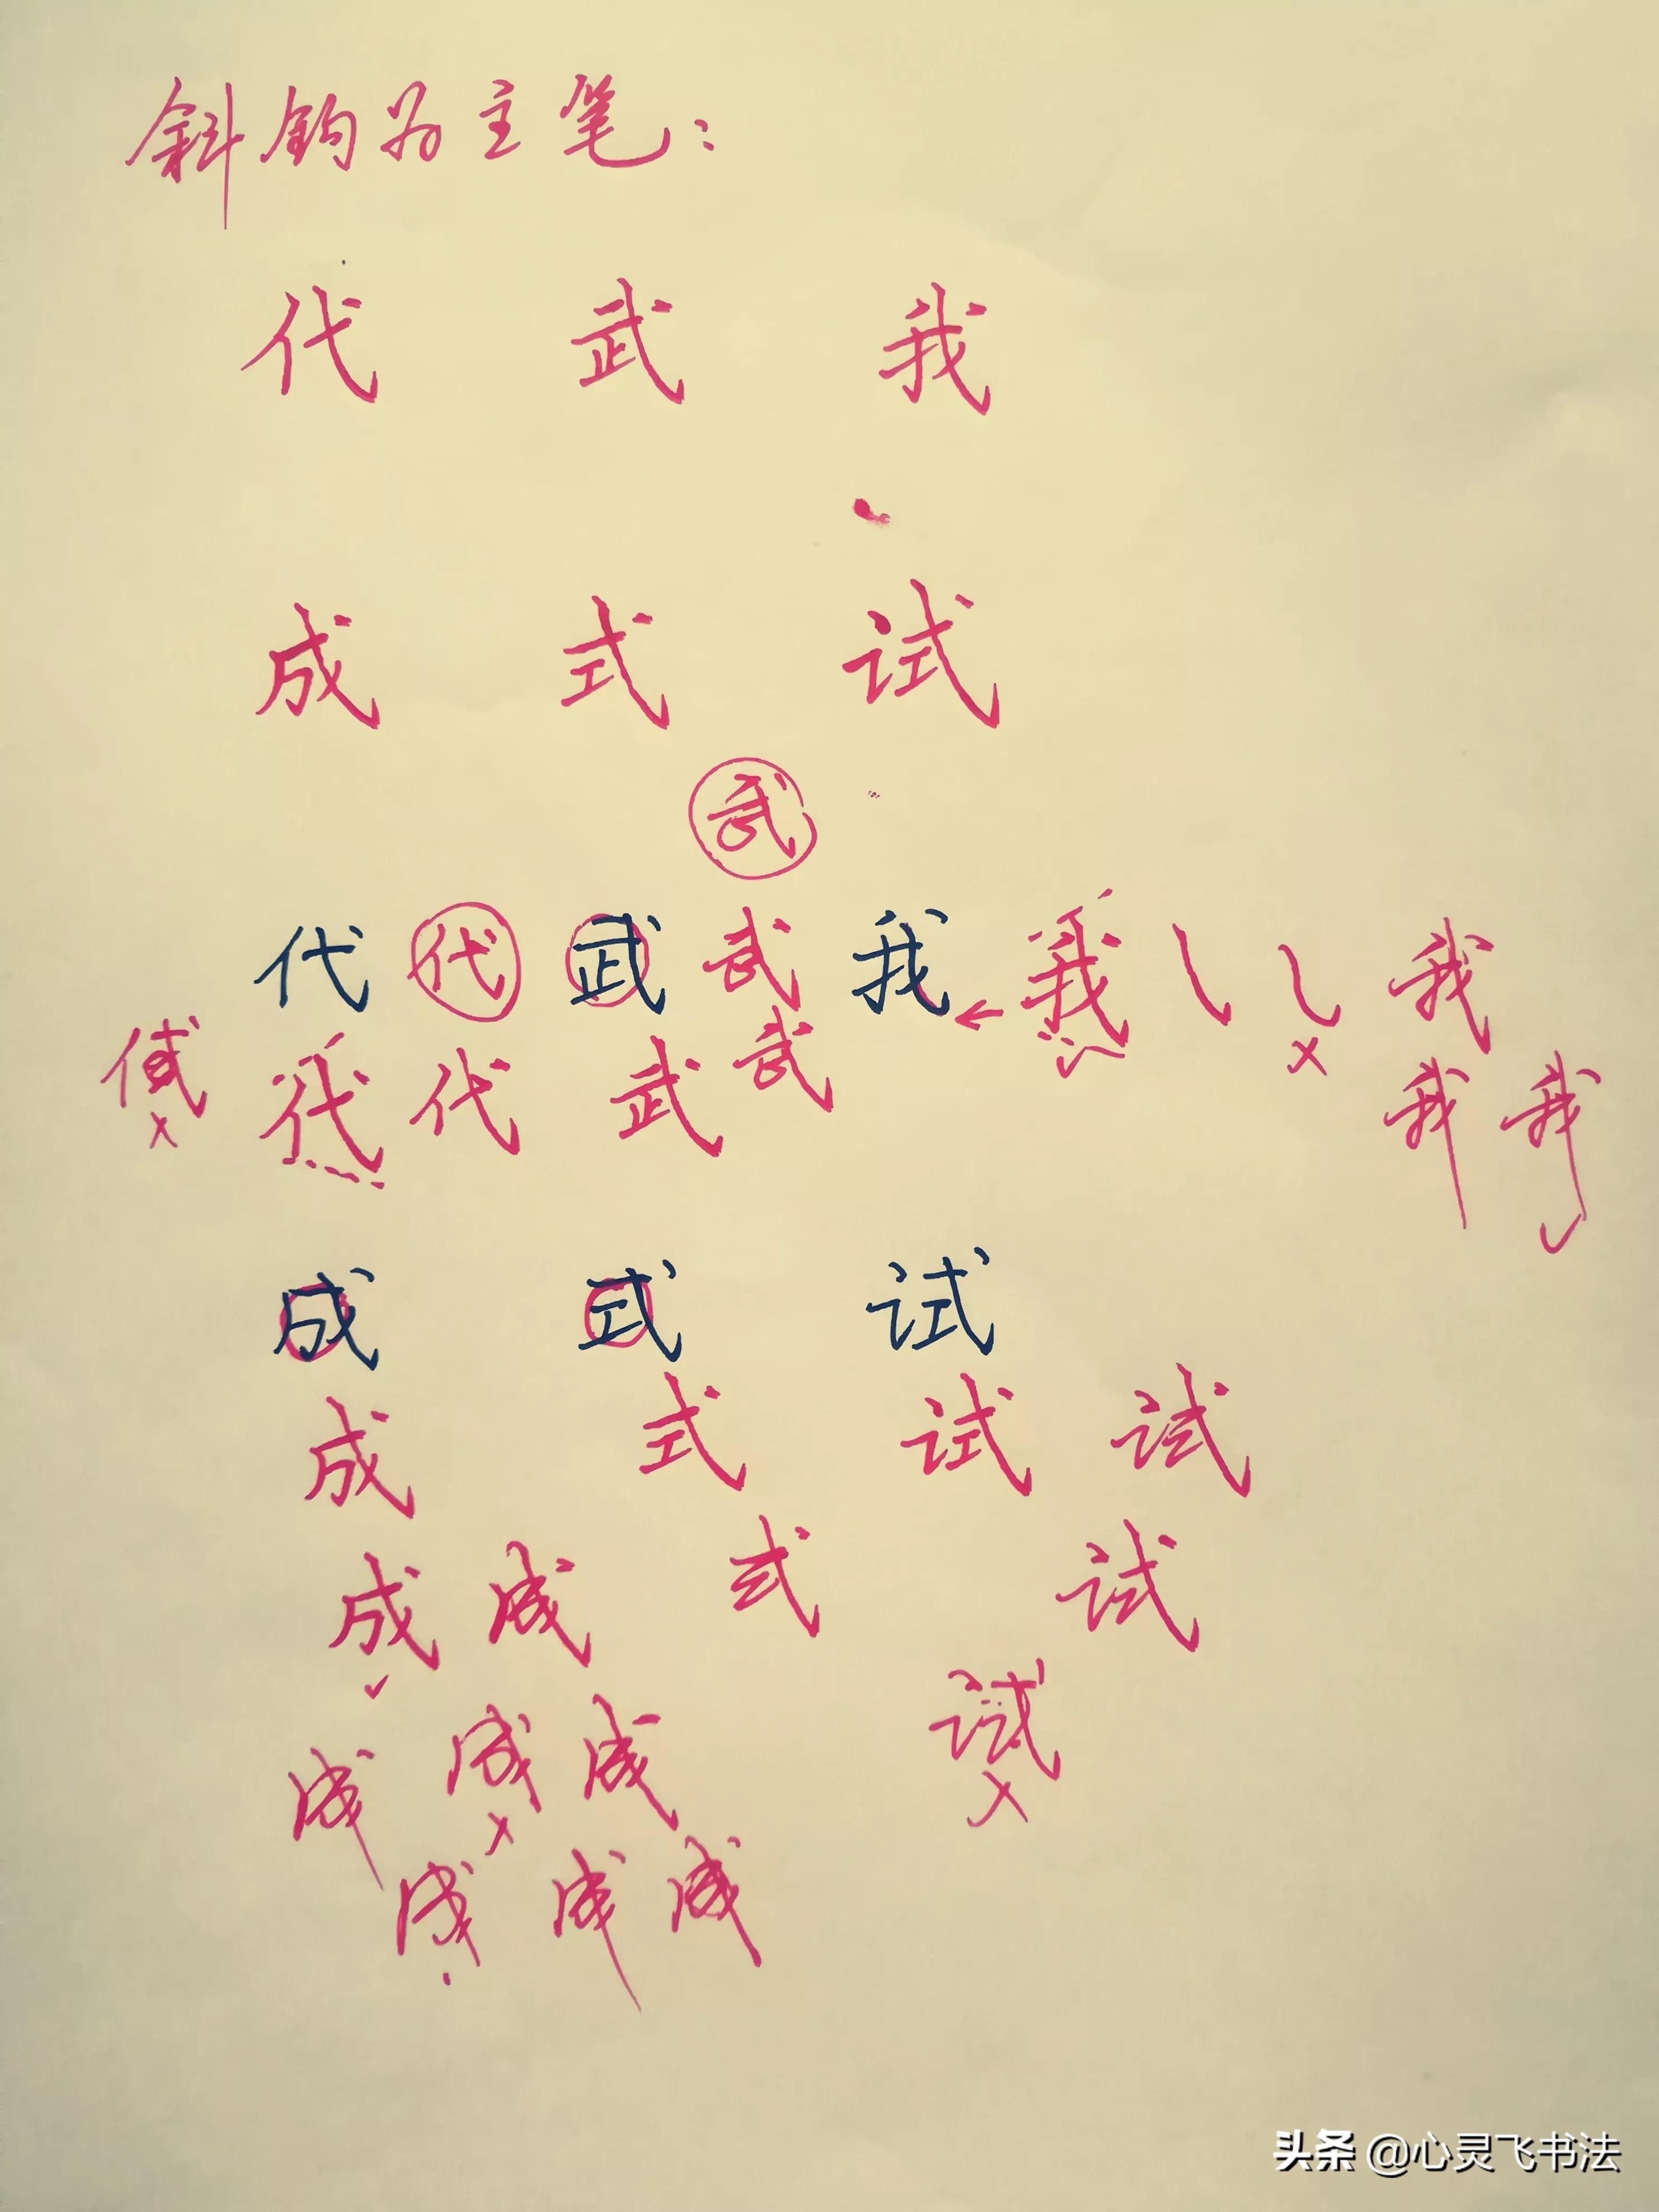 斜钩为主笔：
代 武 我
成 式 试
武
代 代 武 武 我 我 我
代 代 武 武 我 我
成 式 试
成 式 试 试
成 成 式 试
成 成 成 试
成 成 成
头条 @心灵飞书法